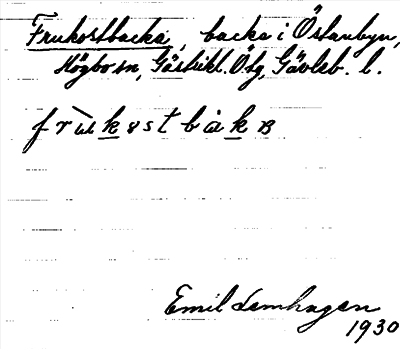 Frukostbacka, backa i Östanbyn,
Högbo sn, Gästrikl. Ötg, Gävleb. l.
frùkostbàkɐ
Emil Lemhagen
1930